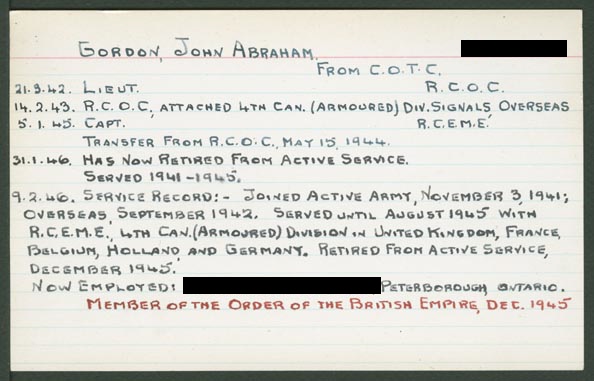 GORDON, JOHN ABRAHAM.
FROM C.O.T.C.
21.3.42. LIEUT. R.C.O.C.
14.2.43. R.C.O.C, ATTACHED 4TH CAN. (ARMOURED) DIV. SIGNALS, OVERSEAS
5.1.45. CAPT. R.C.E.M.E.
TRANSFER FROM R.C.O.C., MAY 15, 1944.
31.1.46. HAS NOW RETIRED FROM ACTIVE SERVICE.
SERVED 1941-1945.
9.2.46. SERVICE RECORD:- JOINED ACTIVE ARMY, NOVEMBER 3, 1941;
OVERSEAS, SEPTEMBER 1942. SERVED UNTIL AUGUST 1945 WITH
R.C.E.M.E., 4TH CAN. (ARMOURED) DIVISION IN UNITED KINGDOM, FRANCE,
BELGIUM, HOLLAND AND GERMANY. RETIRED FROM ACTIVE SERVICE,
DECEMBER 1945.
NOW EMPLOYED: PETERBOROUGH, ONTARIO.
MEMBER OF THE ORDER OF THE BRITISH EMPIRE, DEC. 1945